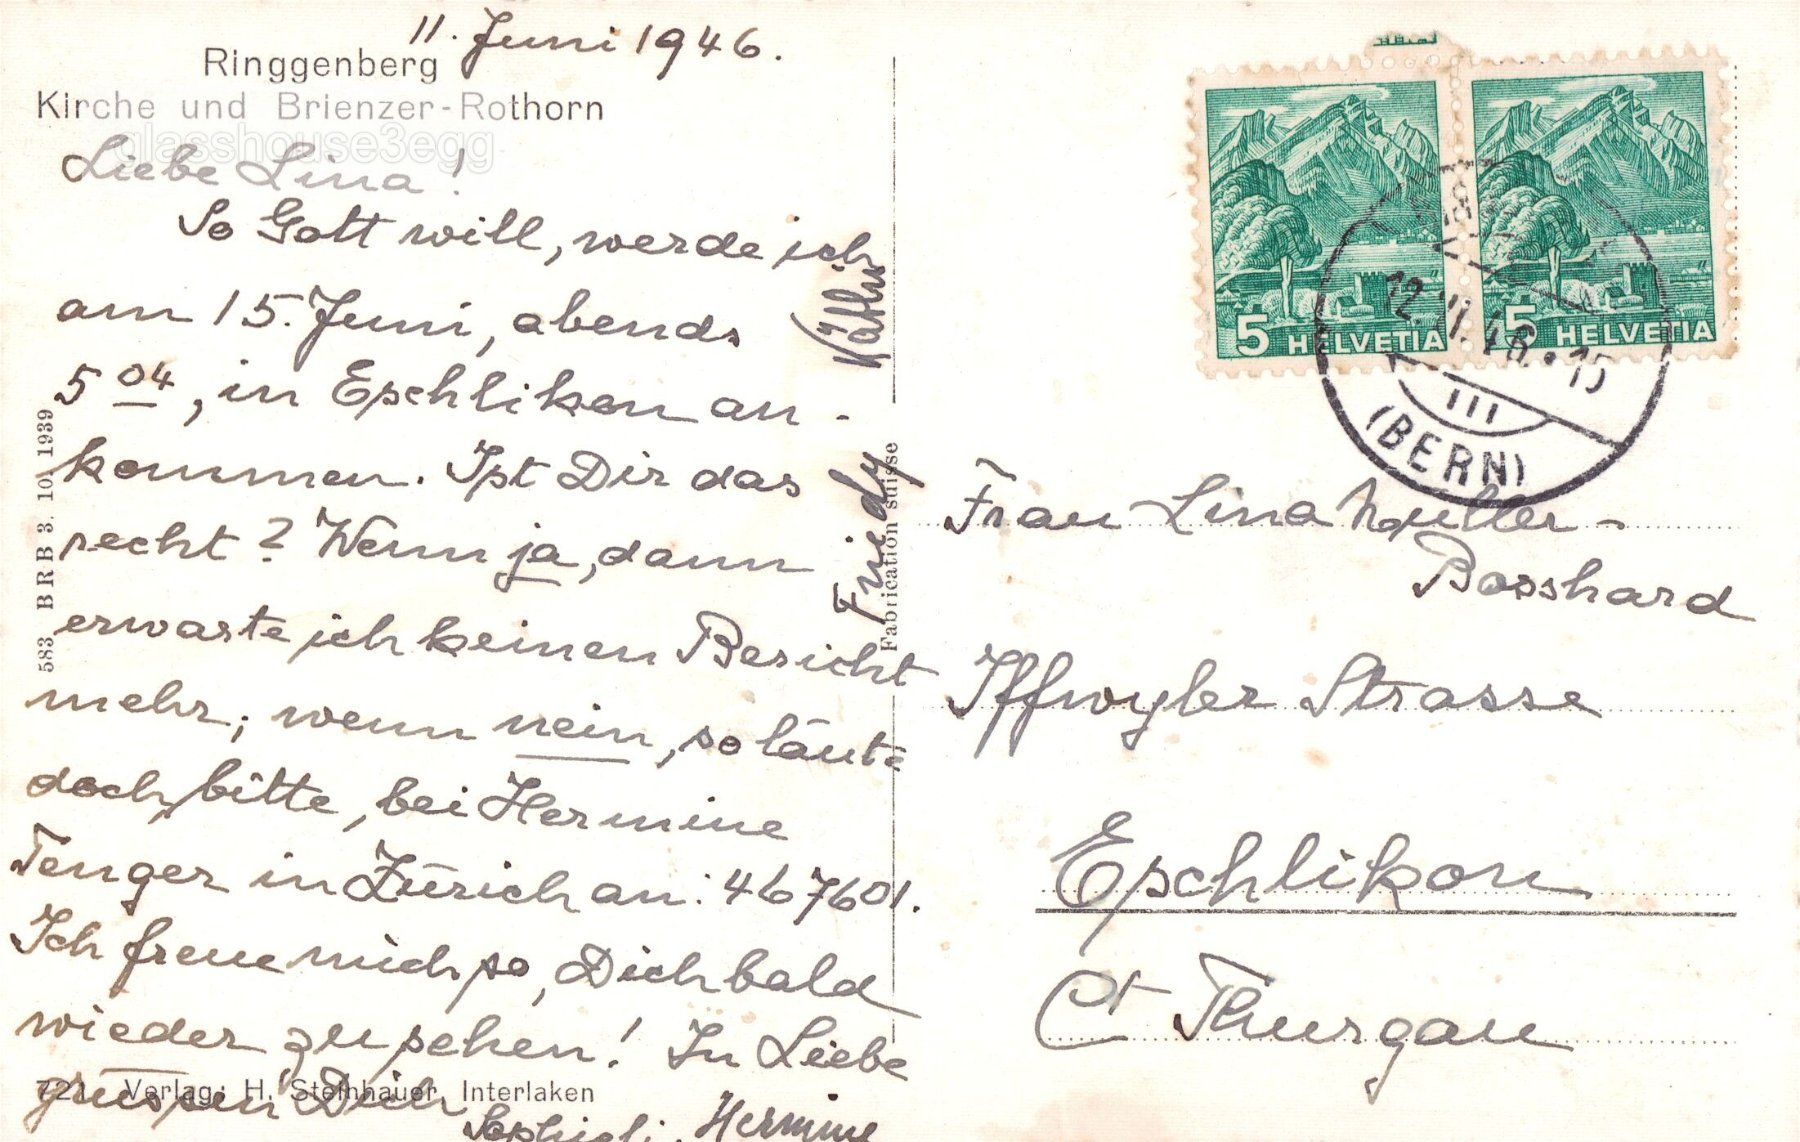 11. Juni 1946.
Ringgenberg
Kirche und Brienzer-Rothorn
glasshouse3egg
Liebe Lina!
So Gott will, werde ich
am 15. Juni, abends
5 04, in Eschlikon an-
kommen. Ist Dir das
recht? Wenn ja, dann
erwarte ich keinen Bericht
mehr; wenn nein, so läute
doch, bitte, bei Hermine
Fenger in Zürich an: 467601.
Ich freue mich so, Dich bald
wieder zu sehen! In Liebe
grüssen Dich
Sophieli, Hermine
Friedy
583 BRB 3. 10. 1939
Fabrication suisse
721 Verlag: H. Steinhauer, Interlaken
5 HELVETIA
5 HELVETIA
12. VI. 46. 15
III
(BERN)
Frau Lina Müller-
Bosshard
Iffwyler Strasse
Eschlikon
Ct Thurgau